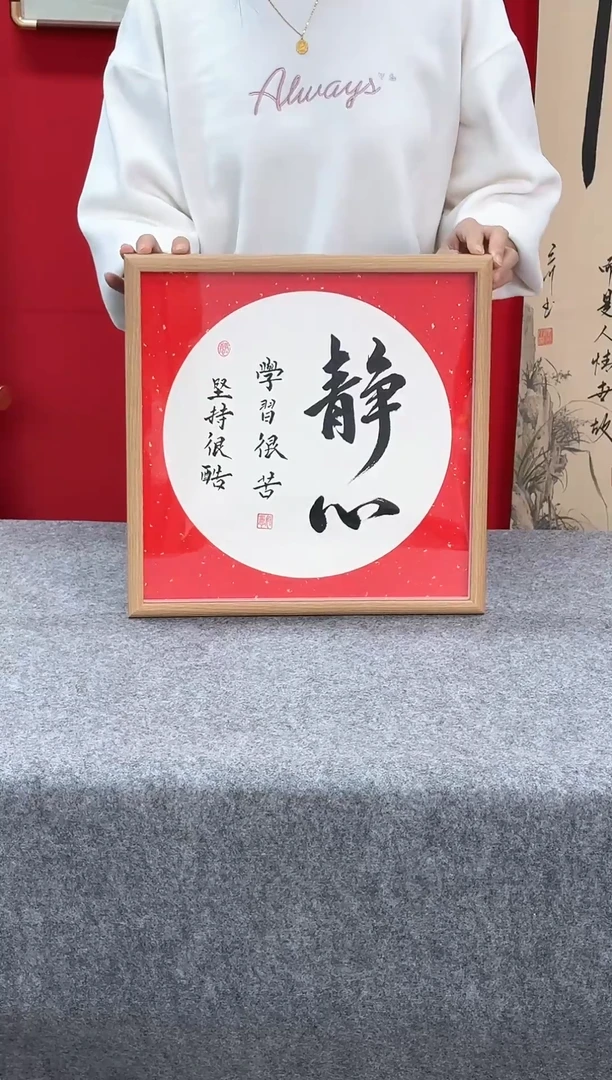 Always
靜心
學習很苦
堅持很酷
听是人情世故